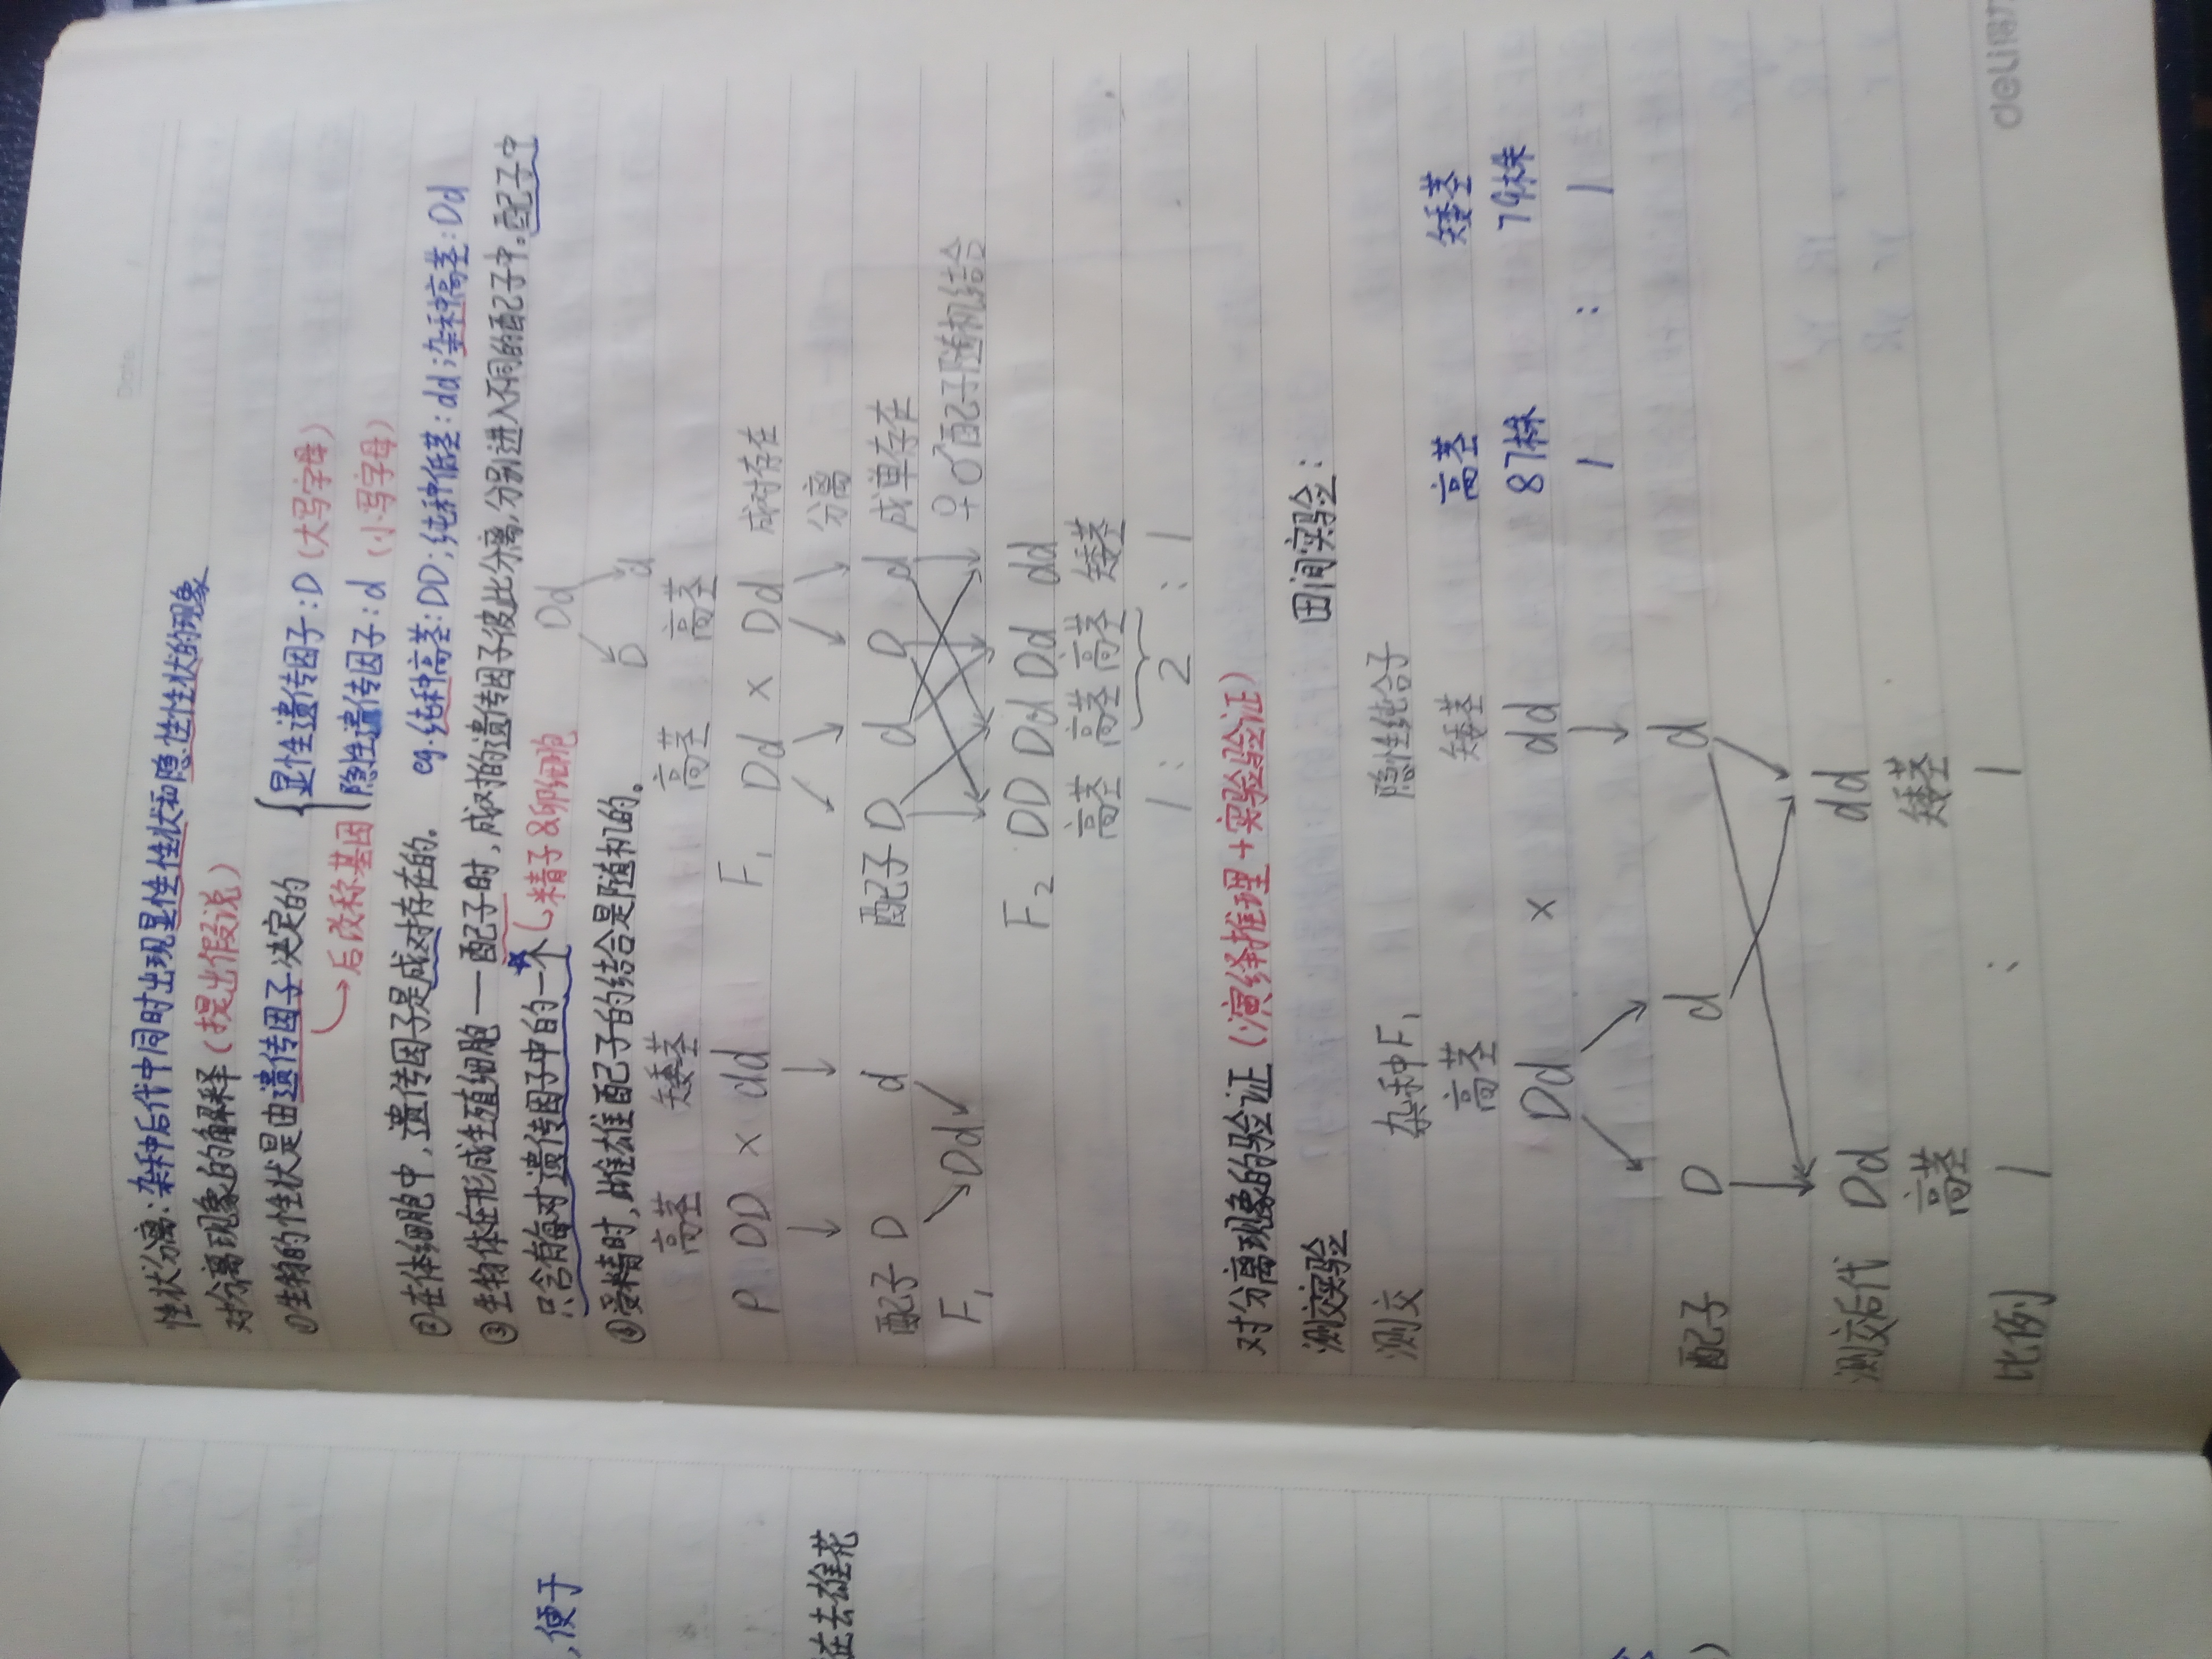 Date.
性状分离:杂种后代中同时出现显性性状和隐性性状的现象
对分离现象的解释(提出假说)
①生物的性状是由遗传因子决定的 { 显性遗传因子:D(大写字母)
→后改称基因 隐性遗传因子:d(小写字母)
②在体细胞中,遗传因子是成对存在的。 eg.纯种高茎:DD;纯种低茎:dd;杂种高茎:Dd
③生物体在形成生殖细胞——配子时,成对的遗传因子彼此分离,分别进入不同的配子中。配子中
只含有每对遗传因子中的一个 (精子&卵细胞 Dd
④受精时,雌雄配子的结合是随机的。 D d
高茎 矮茎 高茎 高茎
P DD × dd F₁ Dd × Dd 成对存在
↓ ↓ ↙ ↘ ↙ ↘ 分离
配子 D d 配子 D d D d 成单存在
F₁ ↘Dd↙ ♀♂配子随机结合
F₂ DD Dd Dd dd
高茎 高茎 高茎 矮茎
1 : 2 : 1
对分离现象的验证(演绎推理+实验验证)
测交实验 田间实验:
测交 杂种F₁ 隐性纯合子
高茎 矮茎 高茎 矮茎
Dd × dd 87株 79株
↙ ↘ ↓ 1 : 1
配子 D d d
测交后代 Dd dd
高茎 矮茎
比例 1 : 1
deli得力
,便于
在去雄花
)